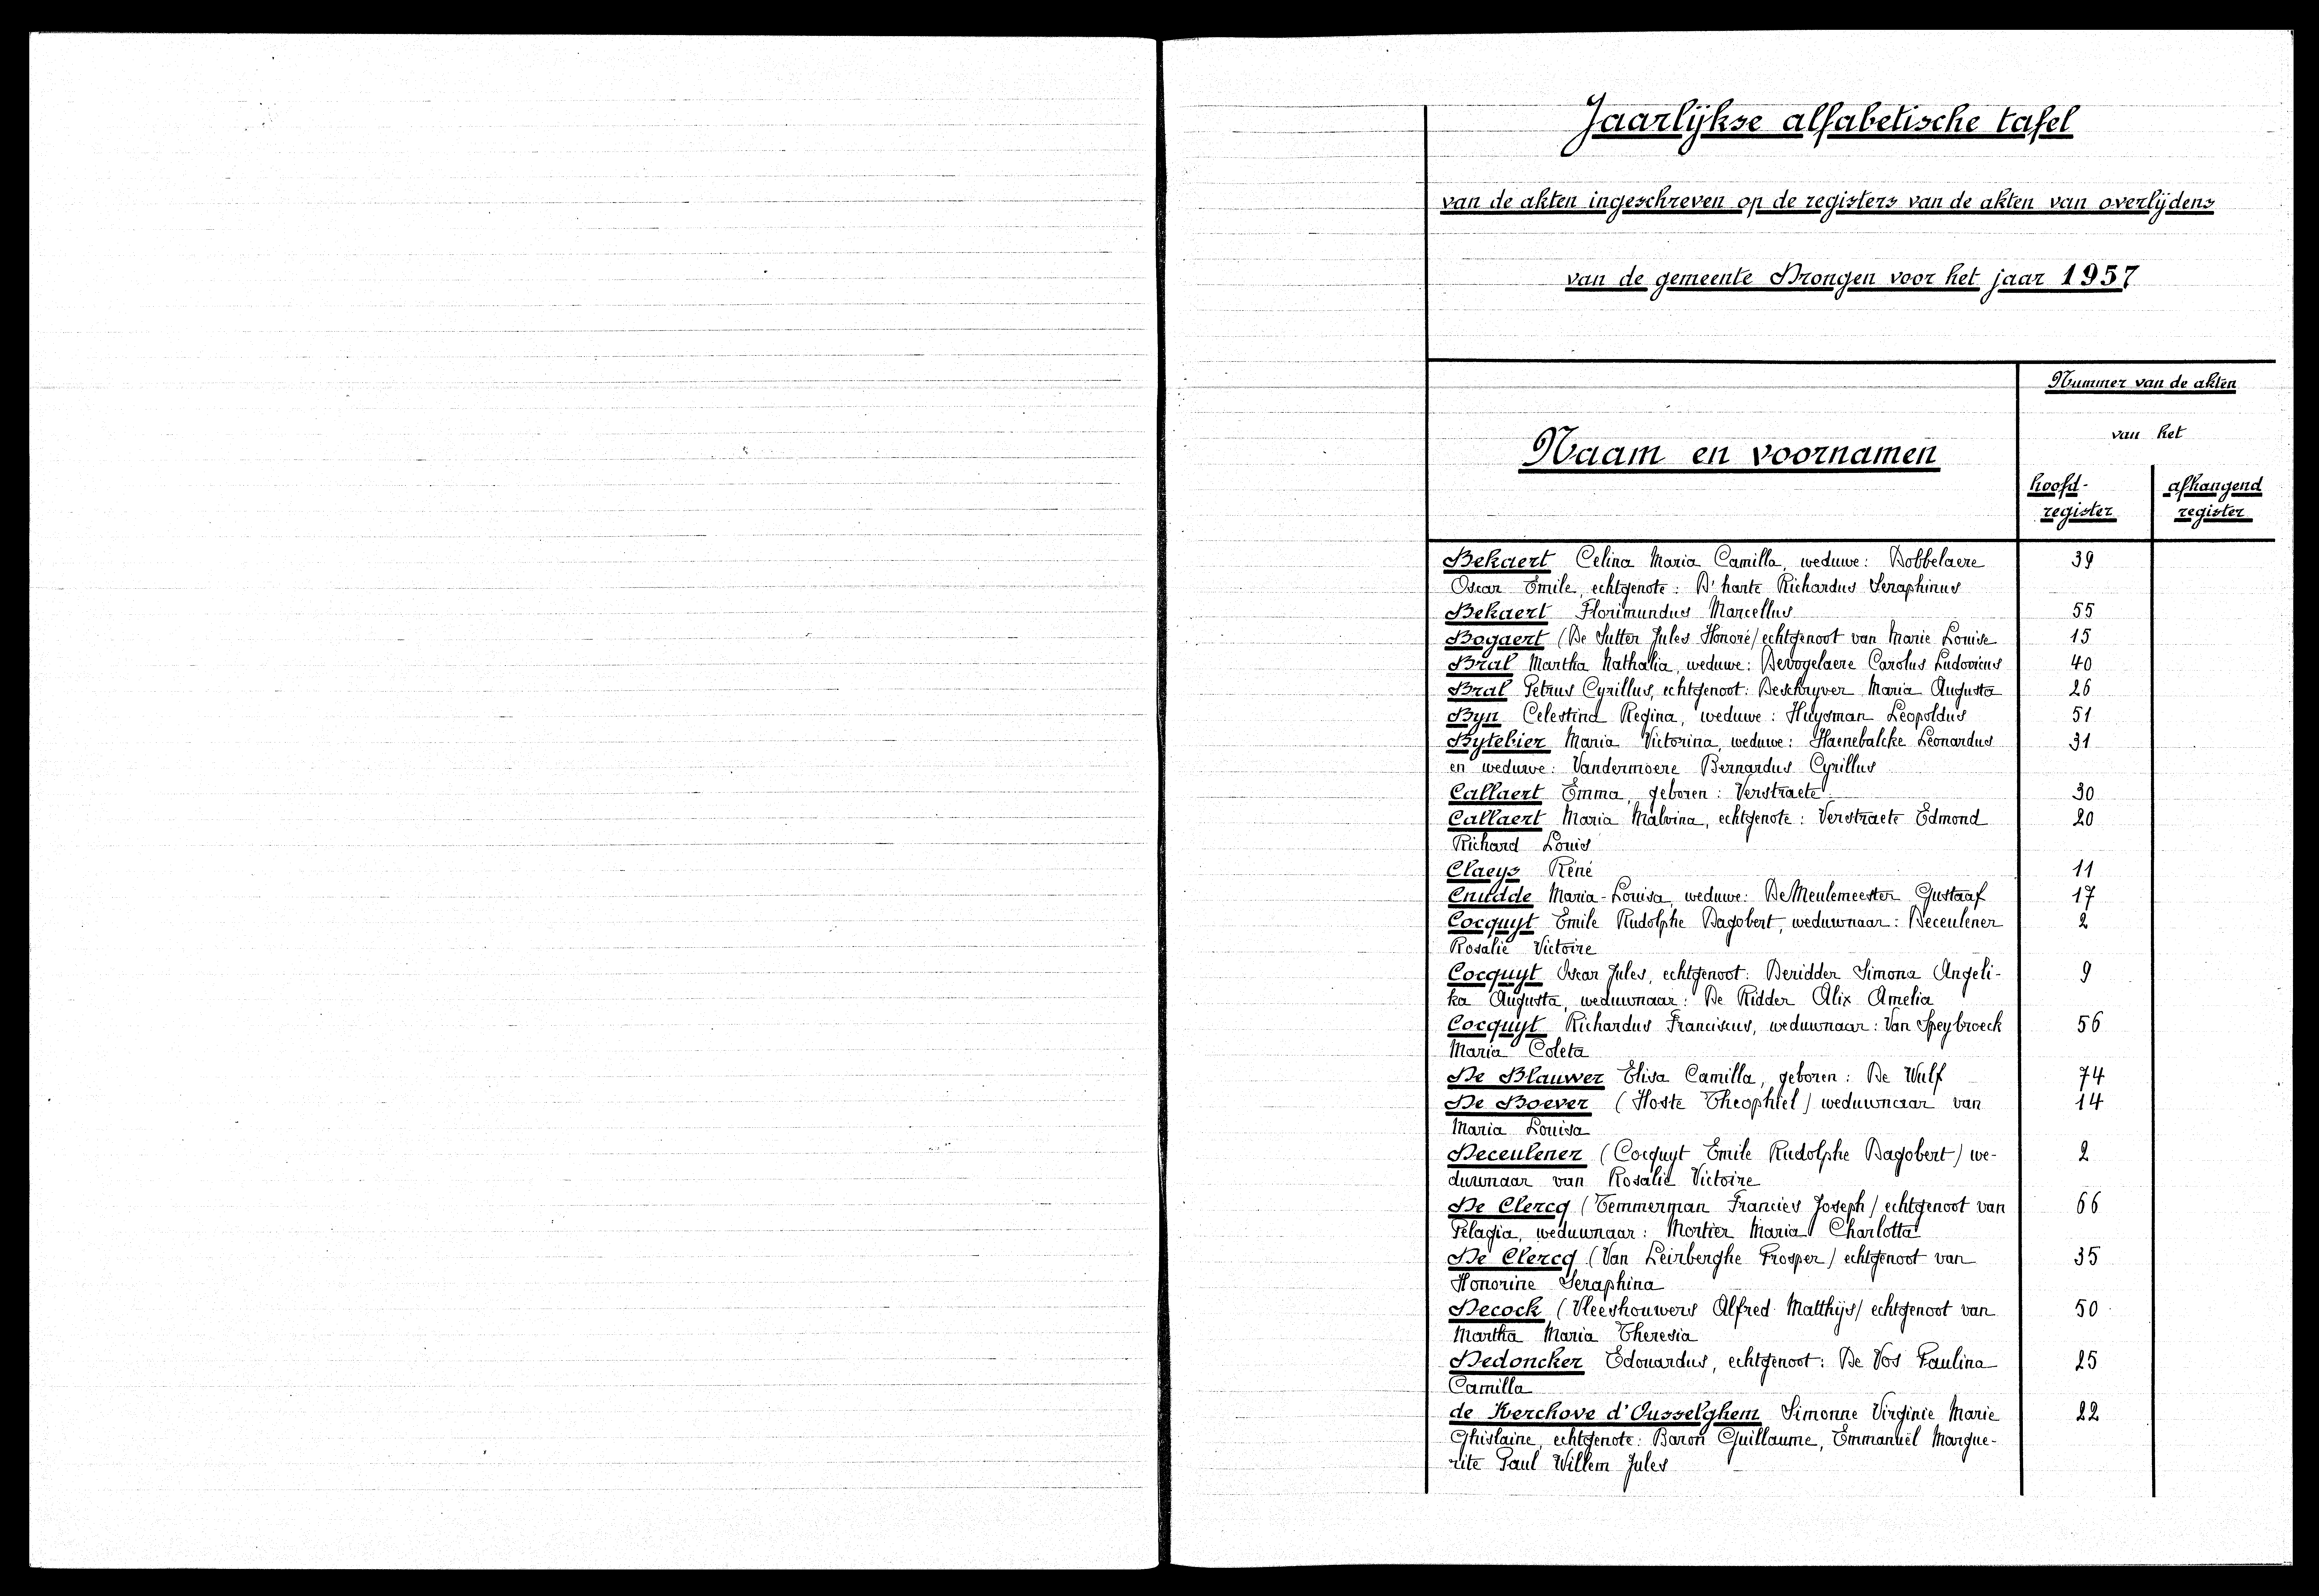 Jaarlijkse alfabetische tafel
van de akten ingeschreven op de registers van de akten van overlijdens
van de gemeente Drongen voor het jaar 1957
Nummer van de akten
van het
Naam en voornamen
hoofd-
register
afhangend
register
Bekaert Celina Maria Camilla, weduwe: Dobbelaere 39
Oscar Emile, echtgenote: D'hante Richardus Seraphinus
Bekaert Florimundus Marcellus 55
Bogaert (De Sutter Jules Honoré) echtgenoot van Marie Louise 15
Bral Martha Nathalia, weduwe: Devogelaere Carolus Ludovicus 40
Bral Petrus Cyrillus, echtgenoot: Deschryver Maria Augusta 26
Byn Celestina Regina, weduwe: Huysman Leopoldus 51
Bytebier Maria Victorina, weduwe: Haenebalcke Leonardus 31
en weduwe: Vandermoere Bernardus Cyrillus
Callaert Emma, geboren: Verstraete 30
Callaert Maria Malvina, echtgenote: Verstraete Edmond 20
Richard Louis
Claeys Réné 11
Cnudde Maria-Louisa, weduwe: De Meulemeester Gustaaf 17
Cocquyt Emile Rudolphe Dagobert, weduwnaar: Deceulener 2
Rosalie Victoire
Cocquyt Oscar Jules, echtgenoot: Deridder Simona Angeli- 9
ka Augusta, weduwnaar: De Ridder Alix Amelia
Cocquyt Richardus Franciscus, weduwnaar: Van Speybroeck 56
Maria Coleta
De Blauwer Elisa Camilla, geboren: De Wulf 74
De Boever (Hoste Theophiel) weduwnaar van 14
Maria Louisa
Deceulener (Cocquyt Emile Rudolphe Dagobert) we- 2
duwnaar van Rosalie Victoire
De Clercq (Temmerman Francies Joseph) echtgenoot van 66
Pelagia, weduwnaar: Mortier Maria Charlotta
De Clercq (Van Leirberghe Prosper) echtgenoot van 35
Honorine Seraphina
Decock (Vleeshouwers Alfred Matthijs) echtgenoot van 50
Martha Maria Theresia
Dedoncker Edouardus, echtgenoot: De Vos Paulina 25
Camilla
de Kerchove d'Ousselghem Simonne Virginie Marie 22
Ghislaine, echtgenote: Baron Guillaume, Emmanuël Margue-
rite Paul Willem Jules